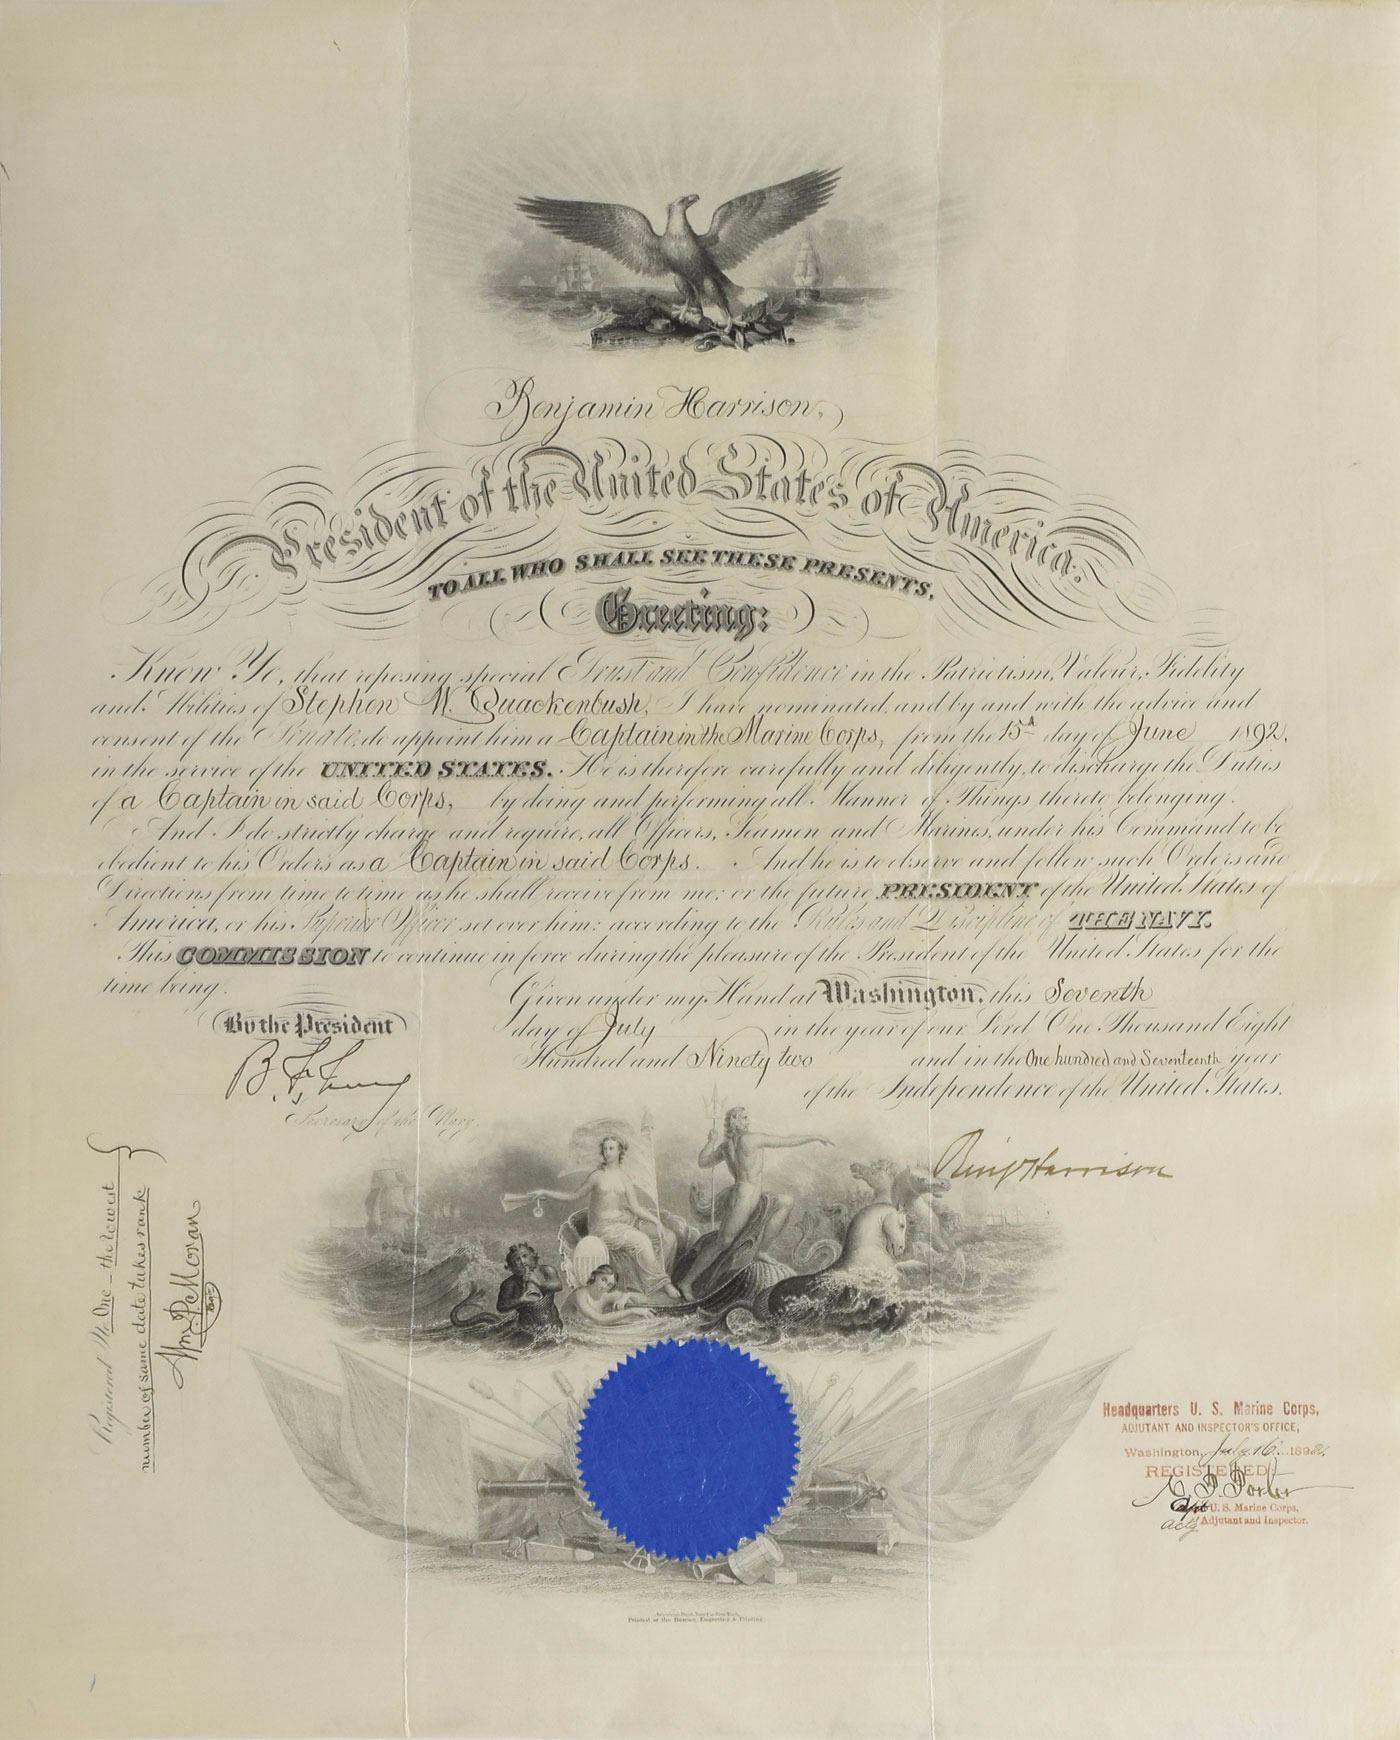 Benjamin Harrison,
President of the United States of America.
TO ALL WHO SHALL SEE THESE PRESENTS,
Greeting:
Know Ye, that reposing special Trust and Confidence in the Patriotism, Valour, Fidelity
and Abilities of Stephen W. Quackenbush, I have nominated, and by and with the advice and
consent of the Senate, do appoint him a Captain in the Marine Corps, from the 15d day of June 1892,
in the service of the UNITED STATES. He is therefore carefully and diligently, to discharge the Duties
of a Captain in said Corps, by doing and performing all Manner of Things thereto belonging.
And I do strictly charge and require, all Officers, Seamen and Marines, under his Command to be
obedient to his Orders as a Captain in said Corps. And he is to observe and follow such Orders and
Directions from time to time as he shall receive from me, or the future PRESIDENT of the United States of
America, or his Superior Officer set over him: according to the Rules and Discipline of THE NAVY.
This COMMISSION to continue in force during the pleasure of the President of the United States for the
time being.
Given under my Hand at Washington, this Seventh
day of July in the year of our Lord One Thousand Eight
Hundred and Ninety two and in the One hundred and Seventeenth year
of the Independence of the United States.
By the President
B. F. Tracy
Secretary of the Navy.
Benj Harrison
Registered No One - the lowest
number of same date takes rank
Wm P. Moran
Headquarters U. S. Marine Corps,
ADJUTANT AND INSPECTOR'S OFFICE,
Washington, July 16 1892.
REGISTERED
C. P. Porter
Capt U. S. Marine Corps,
actg Adjutant and Inspector.
Printed at the Bureau, Engraving & Printing.